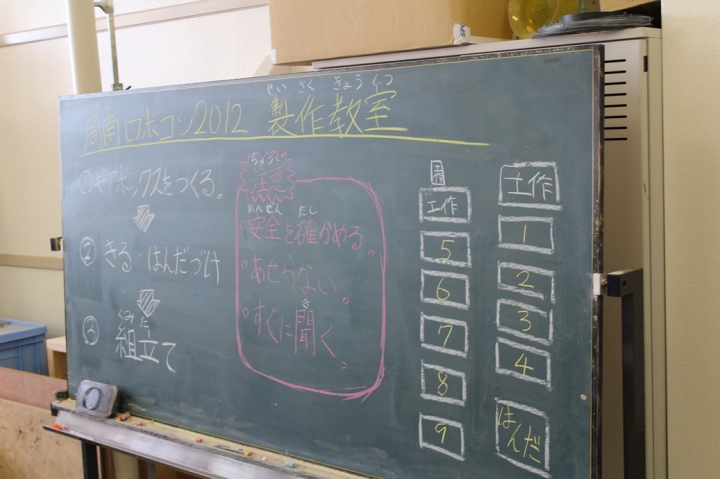 周南ロボコン2012 製作教室
せいさくきょうしつ
①ギアボックスをつくる。
②きる・はんだづけ
③組立て
くみた
ちゅうい
注意
あんぜん たし
・安全を確かめる。
・あせらない。
・すぐに聞く。
き
工作
5
6
7
8
9
工作
1
2
3
4
はんだ